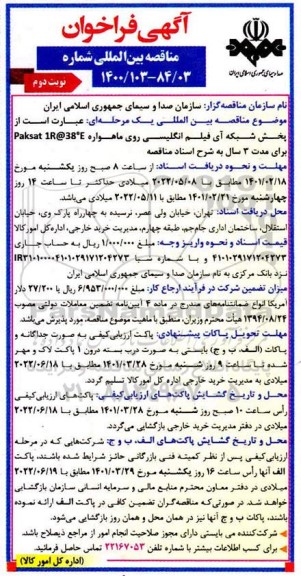 آگهی فراخوان
مناقصه بین المللی شماره
۱۴۰۰/۱۰۳-۸۴/۰۳
نوبت دوم
صدا و سیمای جمهوری اسلامی ایران
نام سازمان مناقصه‌گزار: سازمان صدا و سیمای جمهوری اسلامی ایران
موضوع مناقصه بین المللی یک مرحله‌ای: عبارت است از
پخش شبکه آی فیلم انگلیسی روی ماهواره Paksat 1R@38°E
برای مدت ۳ سال به شرح اسناد مناقصه
مهلت و نحوه دریافت اسناد: از ساعت ۸ صبح روز یکشنبه مورخ
۱۴۰۱/۰۲/۱۸ مطابق با ۲۰۲۲/۰۵/۰۸ میلادی حداکثر تا ساعت ۱۴ روز
چهارشنبه مورخ ۱۴۰۱/۰۲/۲۱ مطابق با ۲۰۲۲/۰۵/۱۱ میلادی می‌باشد.
محل دریافت اسناد: تهران، خیابان ولی عصر، نرسیده به چهارراه پارک وی، خیابان
استقلال، ساختمان اداری جام‌جم، طبقه چهارم، مدیریت خرید خارجی، اداره‌کل امور کالا
قیمت اسناد و نحوه واریز وجه: مبلغ ۱/۰۰۰/۰۰۰ ریال به حساب جاری
۴۱۰۱۰۲۹۱۷۱۲۰۴۲۷۳ و با شماره شبا
نزد بانک مرکزی به نام سازمان صدا و سیمای جمهوری اسلامی ایران
میزان تضمین شرکت در فرآیند ارجاع کار: مبلغ ۶/۹۵۳/۰۰۰/۰۰۰ ریال یا ۲۷/۲۰۰ دلار
آمریکا انواع ضمانتنامه‌های مندرج در ماده ۴ آیین‌نامه تضمین معاملات دولتی مصوب
۱۳۹۴/۰۸/۲۴ هیأت محترم وزیران، منطبق با ماهیت موضوع مناقصه، مورد پذیرش می‌باشد
مهلت تحویل پاکات پیشنهادی: پاکت ارزیابی‌کیفی به صورت جداگانه و
پاکات (الف، ب و ج)، بایستی به صورت درب بسته درون ۱ پاکت لاک و مهر
شده تا ساعت ۹ روز شنبه مورخ ۱۴۰۱/۰۳/۲۸ مطابق با ۲۰۲۲/۰۶/۱۸
میلادی به مدیریت خرید خارجی اداره کل امور کالا تسلیم گردد.
محل و تاریخ گشایش پاکت‌های ارزیابی‌کیفی: پاکت‌های ارزیابی‌کیفی
رأس ساعت ۱۰ صبح روز شنبه مورخ ۱۴۰۱/۰۳/۲۸ مطابق با ۲۰۲۲/۰۶/۱۸
میلادی در دفتر مدیریت خرید خارجی بازگشایی می‌گردد.
محل و تاریخ گشایش پاکت‌های الف، ب و ج: شرکت‌هایی که در مرحله
ارزیابی کیفی از نظر کمیته فنی بازرگانی حائز شرایط شده باشند، پاکت
الف آنها رأس ساعت ۱۶ روز یکشنبه مورخ ۱۴۰۱/۰۳/۲۹ مطابق با ۲۰۲۲/۰۶/۱۹
میلادی در دفتر معاون محترم منابع مالی و سرمایه انسانی سازمان بازگشایی
خواهد شد. در صورتی‌که مناقصه‌گران تضمین کافی در پاکت الف ارائه نموده
باشند، پاکات ب و ج آنها نیز در همان محل و همان روز بازگشایی می‌شود.
شرکت‌کننده می بایستی دارای مجوز صلاحیت انجام امور از مراجع ذیصلاح باشد.
برای کسب اطلاعات بیشتر با شماره تلفن ۲۲۱۶۷۰۵۳ تماس حاصل فرمائید.
(اداره کل امور کالا)